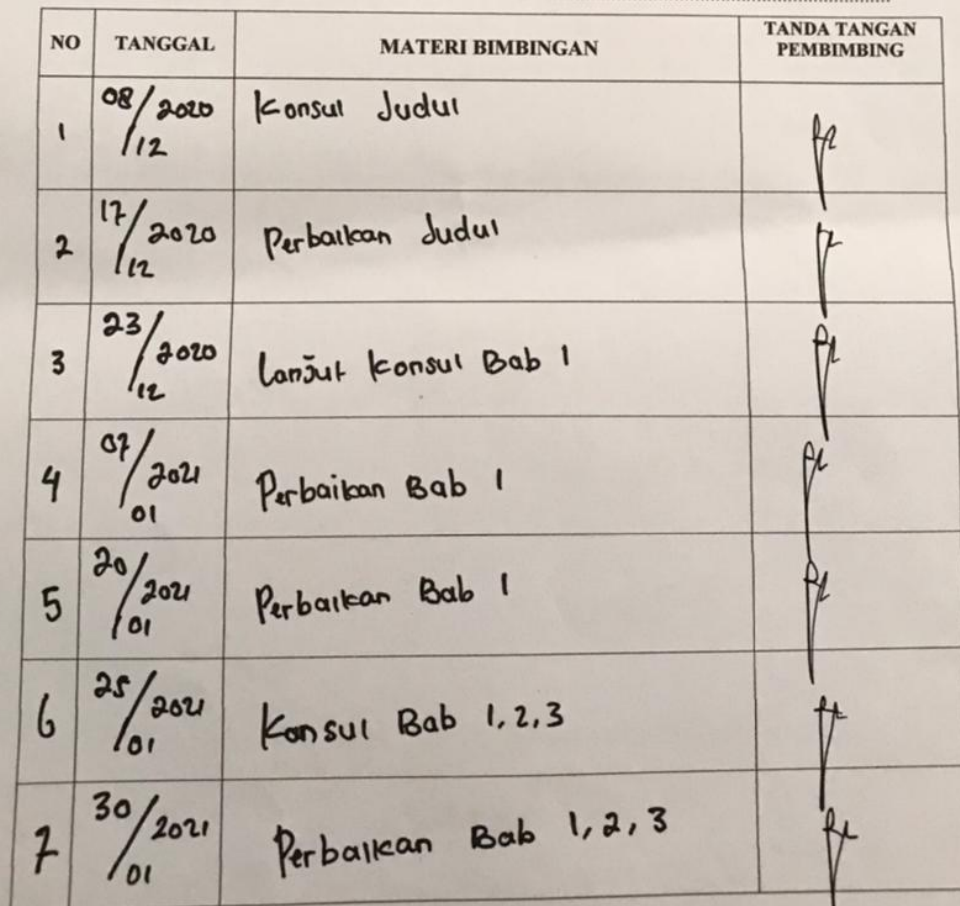 NO TANGGAL MATERI BIMBINGAN TANDA TANGAN PEMBIMBING
1 08/12 2020 Konsul Judul
2 17/12 2020 Perbaikan Judul
3 23/12 2020 Lanjut Konsul Bab 1
4 07/01 2021 Perbaikan Bab 1
5 20/01 2021 Perbaikan Bab 1
6 25/01 2021 Konsul Bab 1,2,3
7 30/01 2021 Perbaikan Bab 1,2,3